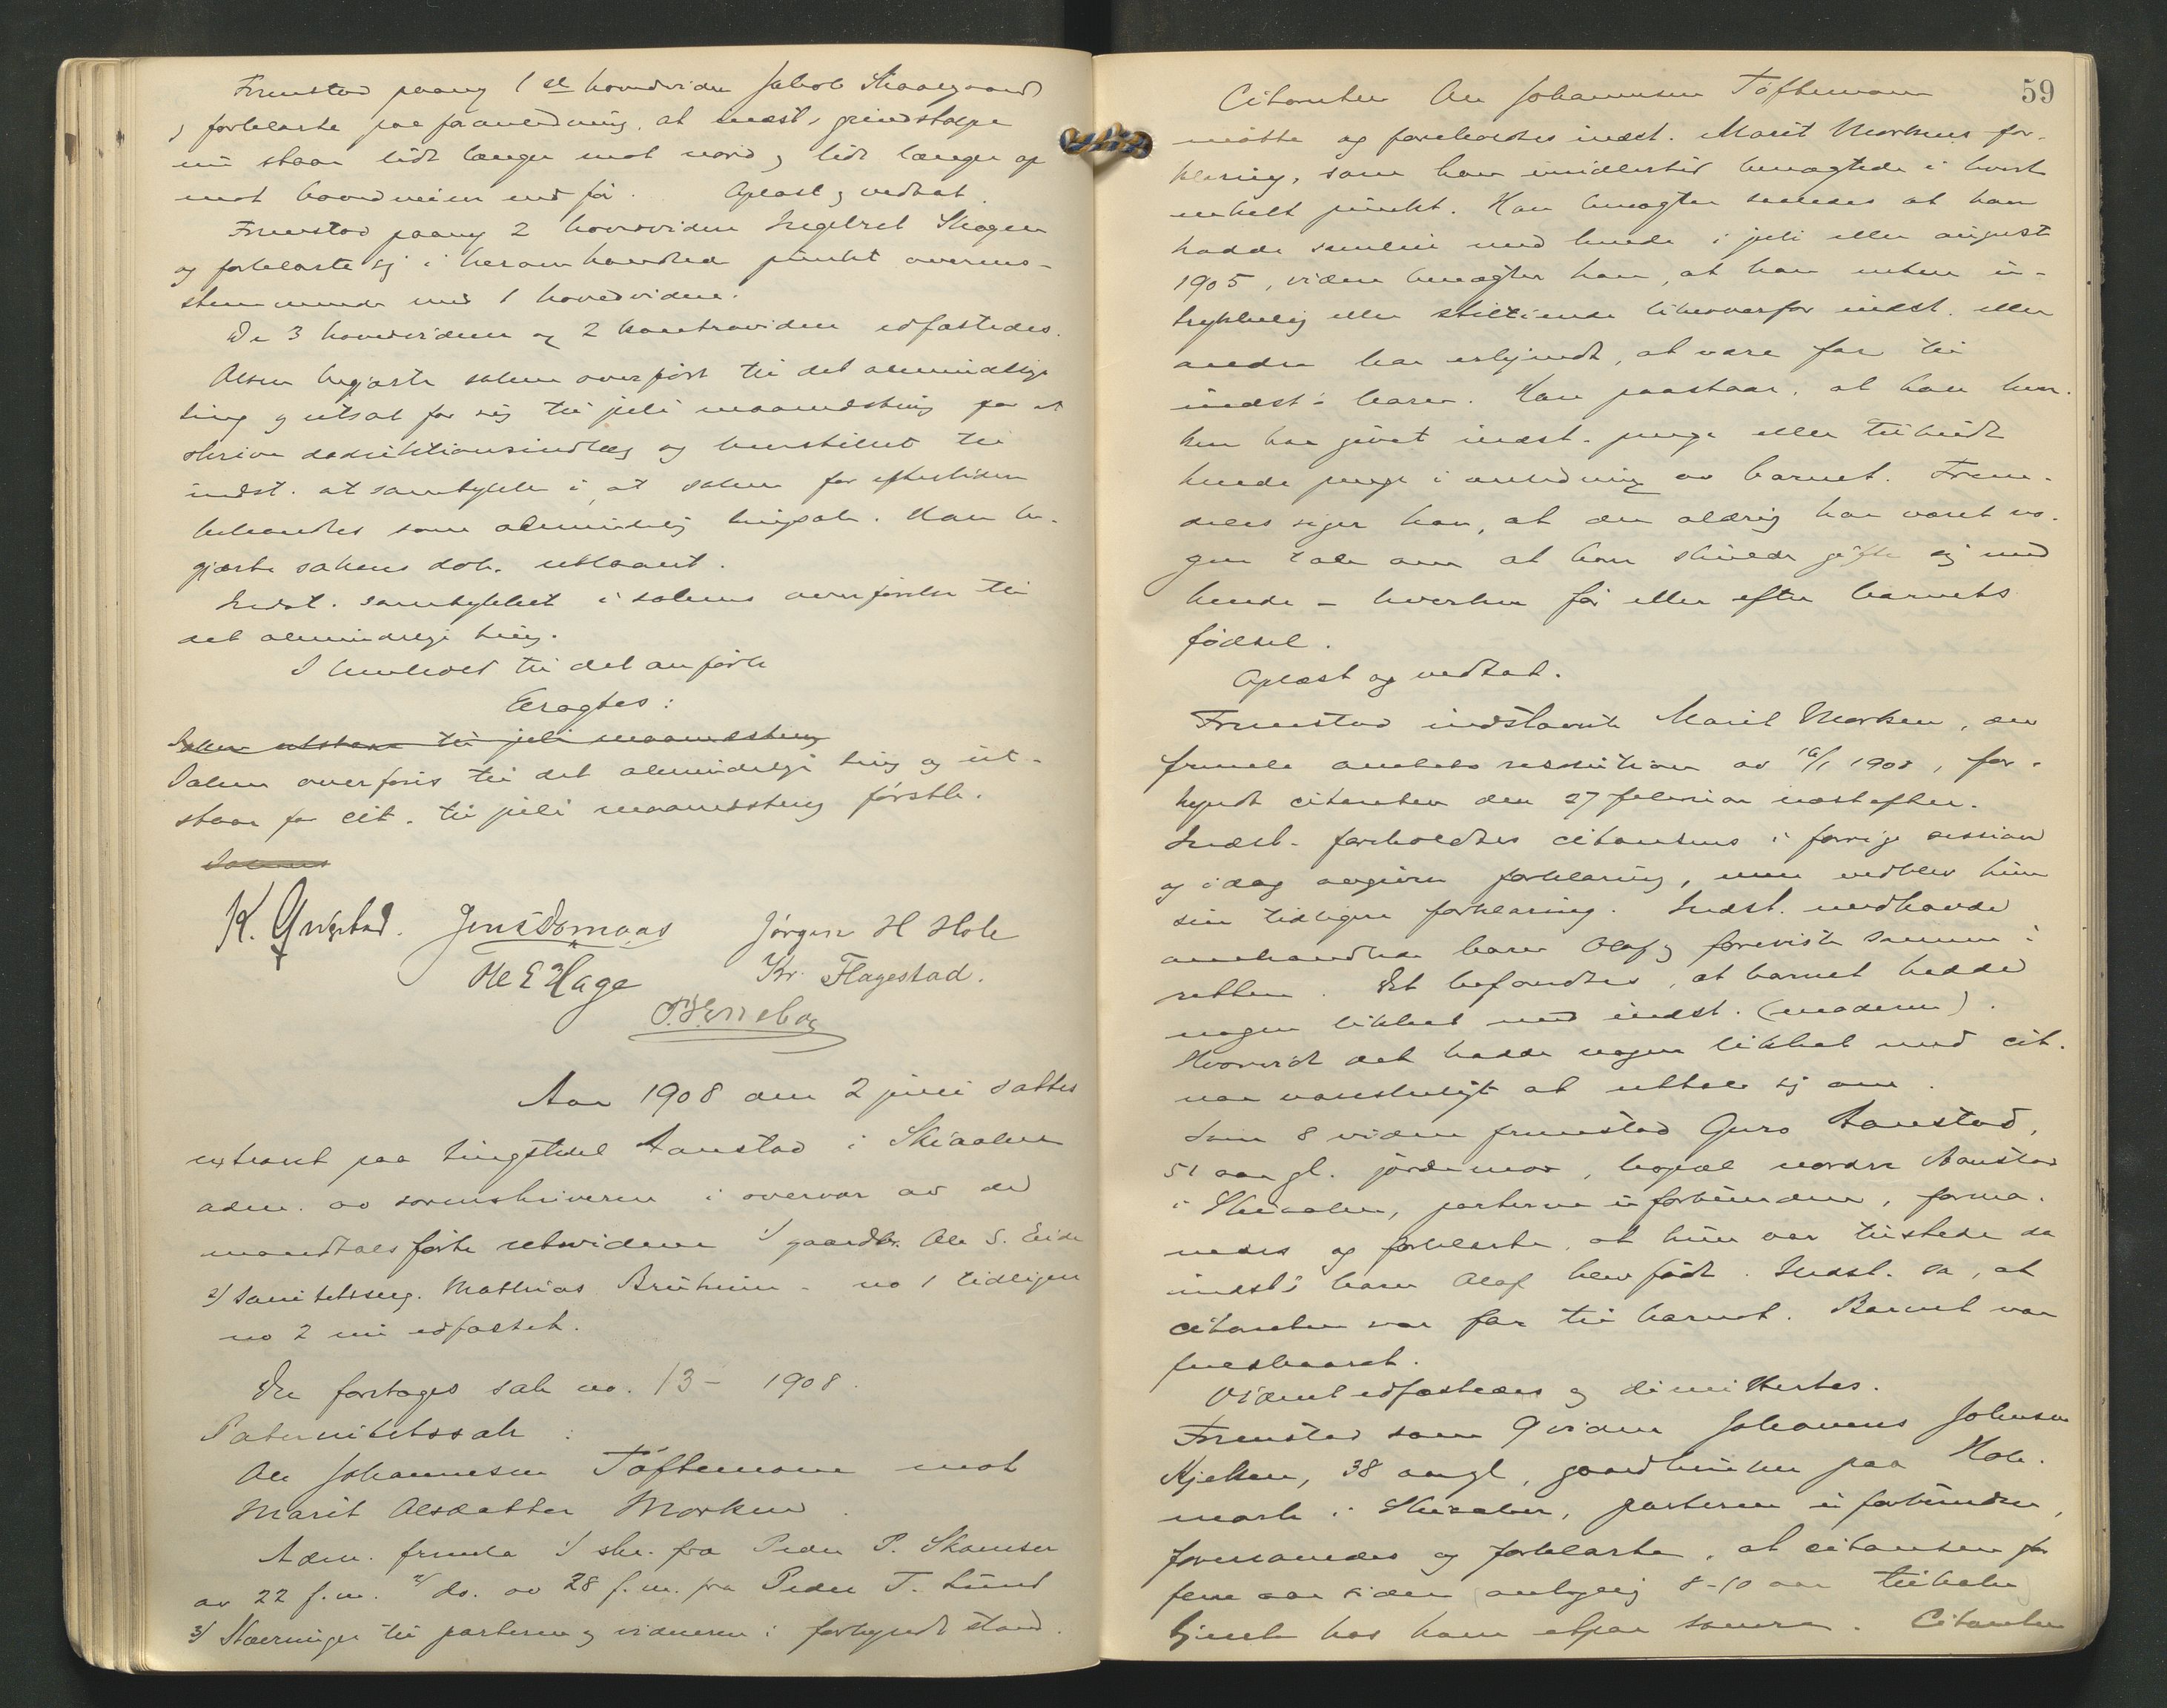 Fremstod paany 1ste hovedvidne Jakob Skaargaard
og forklarte paa foranledning, at indst's grindstolpe
nu staar lidt længer mot nord og lidt længer op
mot hovedveien end før. Oplæst og vedtat.
Fremstod paany 2 hovedvidne Ingebret Skogen
og forklarte sig i heromhandlede punkt overens-
stemmende med 1 hovedvidne.
De 3 hovedvidner og 2 kontravidner edfæstedes.
Olsen begjærte saken overført til det almindelige
ting og utsat for sig til juli maanedsting for at
skrive deduktionsindlæg og henstillet til
indst. at samtykke i, at saken for eftertiden
behandles som almindelig tingsak. Han be-
gjærte sakens dok. utlaant.
Indst. samtykket i sakens overførelse til
det almindelige ting.
I henhold til det anførte
Eragtes:
Saken utstaar til juli maanedsting
Saken overføres til det almindelige ting og ut-
staar for cit. til juli maanedsting førstk.
Sakens
K. Yngestad. Jens Domaas Jørgen H Hole
Ole E Hage Kr. Flagestad.
Aar 1908 den 2 juni sattes
extraret paa tingstedet Aanstad i Skiaaker
adm. av sorenskriveren i overvær av de
mandtalsførte retsvidner 1/ gaardbr. Ole S. Eide
2/ Sanitetsserg. Mathias Bruheim - no 1 tidligere
no 2 nu edfæstet.
Der foretages sak no. 13 - 1908.
Paternitetssak:
Ole Johannesen Töftemoen mot
Marit Olsdatter Morken.
Adm. fremla 1/ skr. fra Peder P. Skamser
av 22 f.m. 2/ do. av 28 f.m. fra Peder T. Lund
3/ Stævninger til parterne og vidnerne i forkyndt stand.
59
Citanten Ole Johannesen Töftemoen
møtte og foreholdtes indst. Marit Morkens for-
klaring, som han imidlertid benegtede i hvert
enkelt punkt. Han benegter saaledes at han
hadde samleie med hende i juli eller august
1905, videre benegter han, at han enten ut-
trykkelig eller stiltiende likeoverfor indst. eller
andre har erkjendt, at være far til
indst's barn. Han paastaar, at han hver-
ken har givet indst. penge eller tilbudt
hende penge i anledning av barnet. Frem-
deles siger han, at der aldrig har været no-
gen tale om at han skulde gifte sig med
hende - hverken før eller efter barnets
fødsel.
Oplæst og vedtat.
Fremstod indstevnte Marit Morken, der
fremla amtets resolution av 16/1 1908, for-
kyndt citanten den 27 februar næstefter.
Indst. foreholdtes citantens i forrige session
og idag avgivne forklaring, men vedblev hun
sin tidligere forklaring. Indst. medhavde
omhandlede barn Olaf og foreviste samme i
retten. Det befandtes, at barnet hadde
nogen likhet med indst. (moderen).
Hvorvidt det hadde nogen likhet med cit.
var vanskeligt at uttale sig om.
Som 8 vidne fremstod Guro Aanstad,
51 aar gl. jordemor, bopæl nordre Aanstad
i Skiaaker, parterne uforbunden, forma-
nedes og forklarte, at hun var tilstede da
indst's barn Olaf blev født. Indst. sa, at
citanten var far til barnet. Barnet var
fuldbaaret.
Vidnet edfæstedes og dimitteredes.
Fremstod som 9 vidne Johannes Johnsen
Kjelken, 38 aar gl, gaardbruker paa Hole-
mark i Skiaaker, parterne uforbunden,
formanedes og forklarte, at citanten for
flere aar siden (antagelig 8-10 aar tilbake)
tjente hos ham etpar somre. Citanten